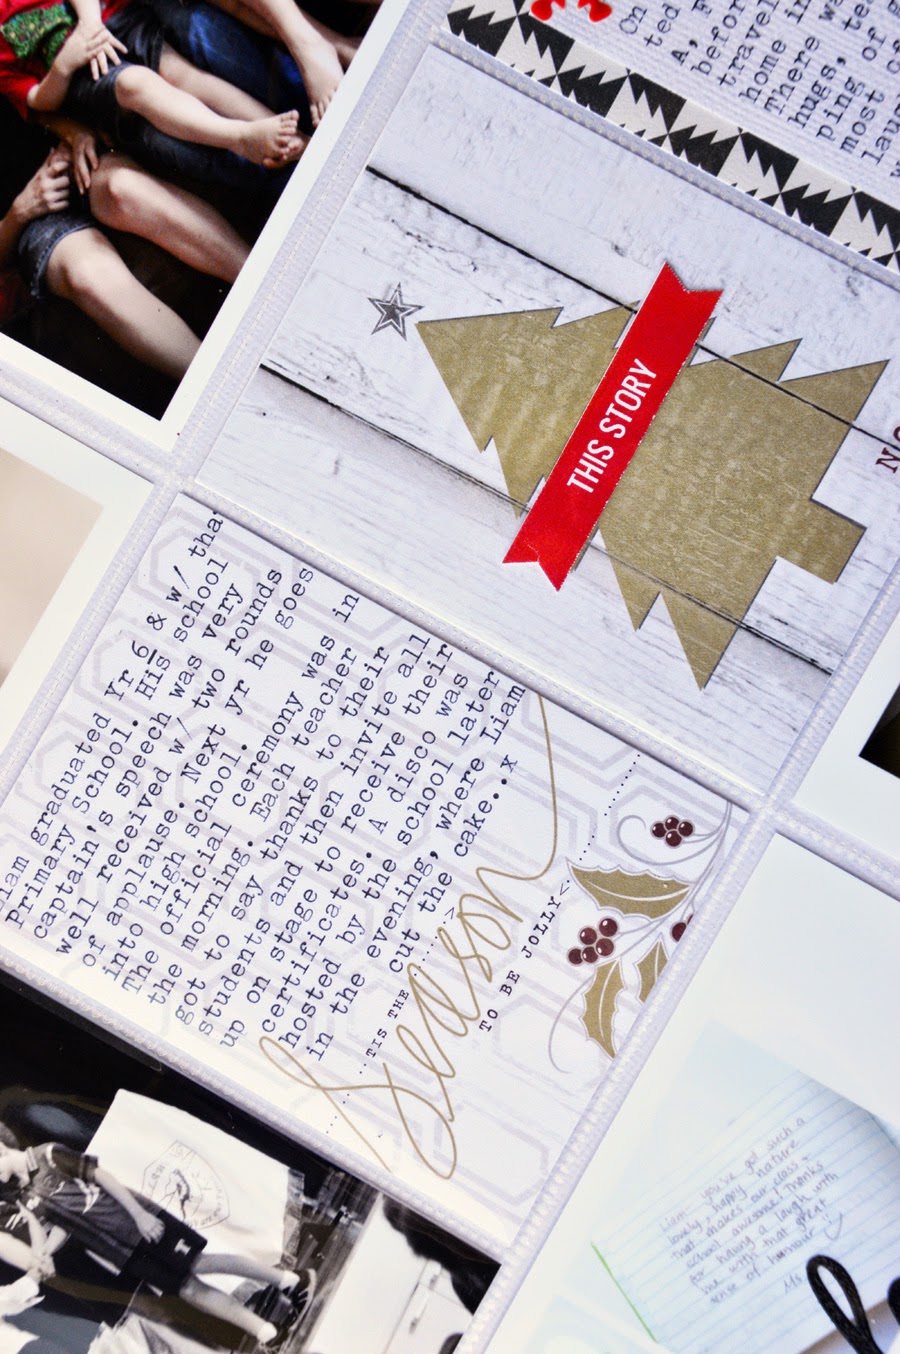 On
ted
A, F
before
travel
home in
There wa
hugs, te
ping of g
most of
laug
w
THIS STORY
NO
iam graduated Yr 6 & w/ tha
Primary School. His school
captain's speech was very
well received w/ two rounds
of applause. Next yr he goes
into high school.
The official ceremony was in
the morning. Each teacher
got to say thanks to their
students and then invite all
up on stage to receive their
certificates. A disco was
hosted by the school later
in the evening, where Liam
cut the cake..x
..TIS THE....:>
season
TO BE JOLLY<
Liam you've got such a
lovely, happy nature
that makes our class
school awesome! Thanks
for having a laugh with
me with that great
sense of humour!!
Ms